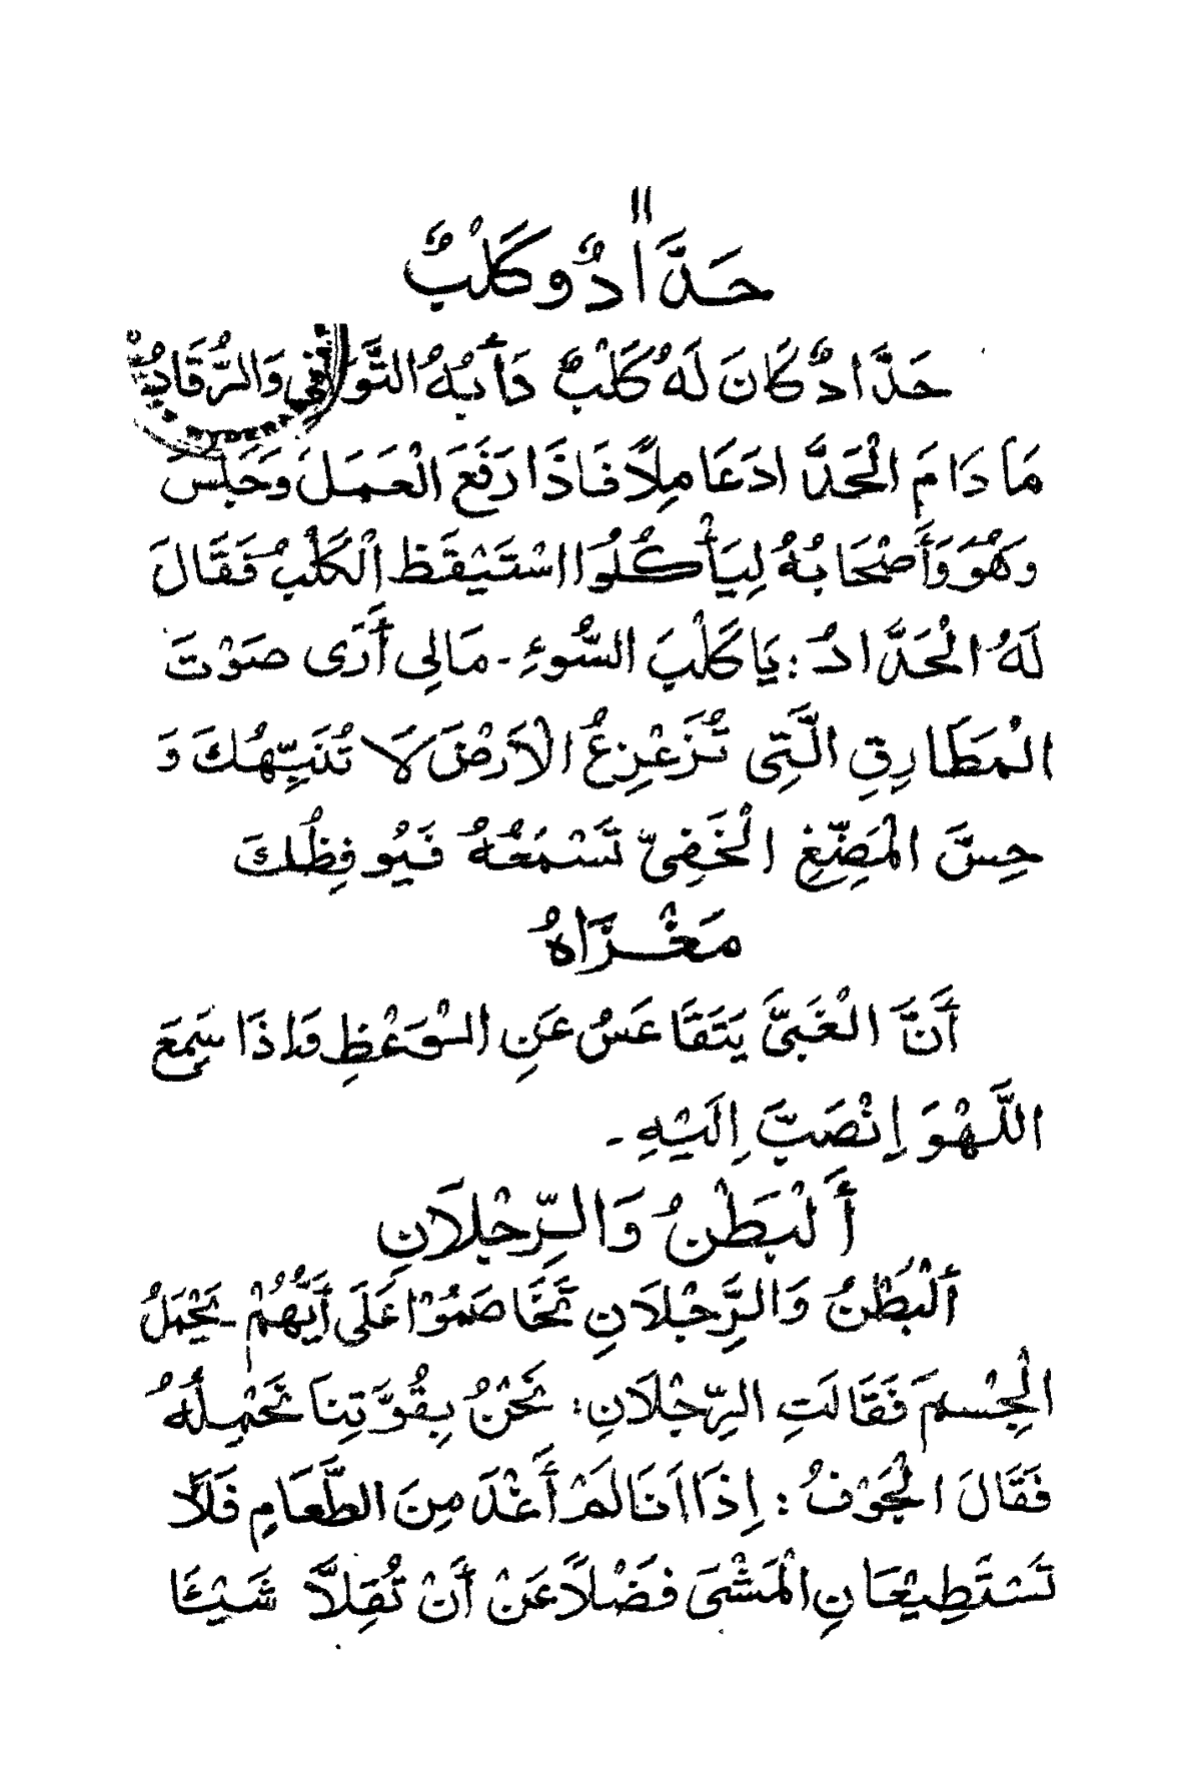 ١١
حَدَّادٌ وَكَلْبٌ
حَدَّادٌ كَانَ لَهُ كَلْبٌ دَأْبُهُ التَّوَانِي وَالرُّقَادُ
مَا دَامَ الْحَدَّادَ عَامِلًا فَاذَا رَفَعَ الْعَمَلَ وَجَلَسَ
وَهُوَ وَأَصْحَابُهُ لِيَأْكُلُوا اسْتَيْقَظَ الْكَلْبُ فَقَالَ
لَهُ الْحَدَّادُ : يَا كَلْبَ السُّوءِ - مَالِى أَرَى صَوْتَ
الْمَطَارِقِ الَّتِى تُزَعْزِعُ الْاَرْضَ لَا تُنَبِّهُكَ وَ
حِسَّ الْمَضِّغِ الْخَفِىّ تَسْمَعُهُ فَيُوقِظُكَ
مَغْزَاهُ
أَنَّ الْغَبِىَّ يَتَقَاعَسُ عَنِ الْوَعْظِ وَاِذَا سَمِعَ
اللَّهْوَ اِنْصَبَّ اِلَيْهِ -
أَلْبَطْنُ وَالرِّجْلَانِ
أَلْبَطْنُ وَالرَِّجْلَانِ تَخَاصَمُوْا عَلَى أَيُّهُمْ - يَحْمِلُ
الْجِسْمَ فَقَالَتِ الرِّجْلَانِ : نَحْنُ بِقُوَّتِنَا نَحْمِلُهُ
فَقَالَ الْجَوْفُ : اِذَا اَنَا لَمْ أَغْدَ مِنَ الطَّعَامِ فَلَا
تَسْتَطِيْعَانِ الْمَشْىَ فَضْلًا عَنْ أَنْ تُقِلَّا شَيْئًا